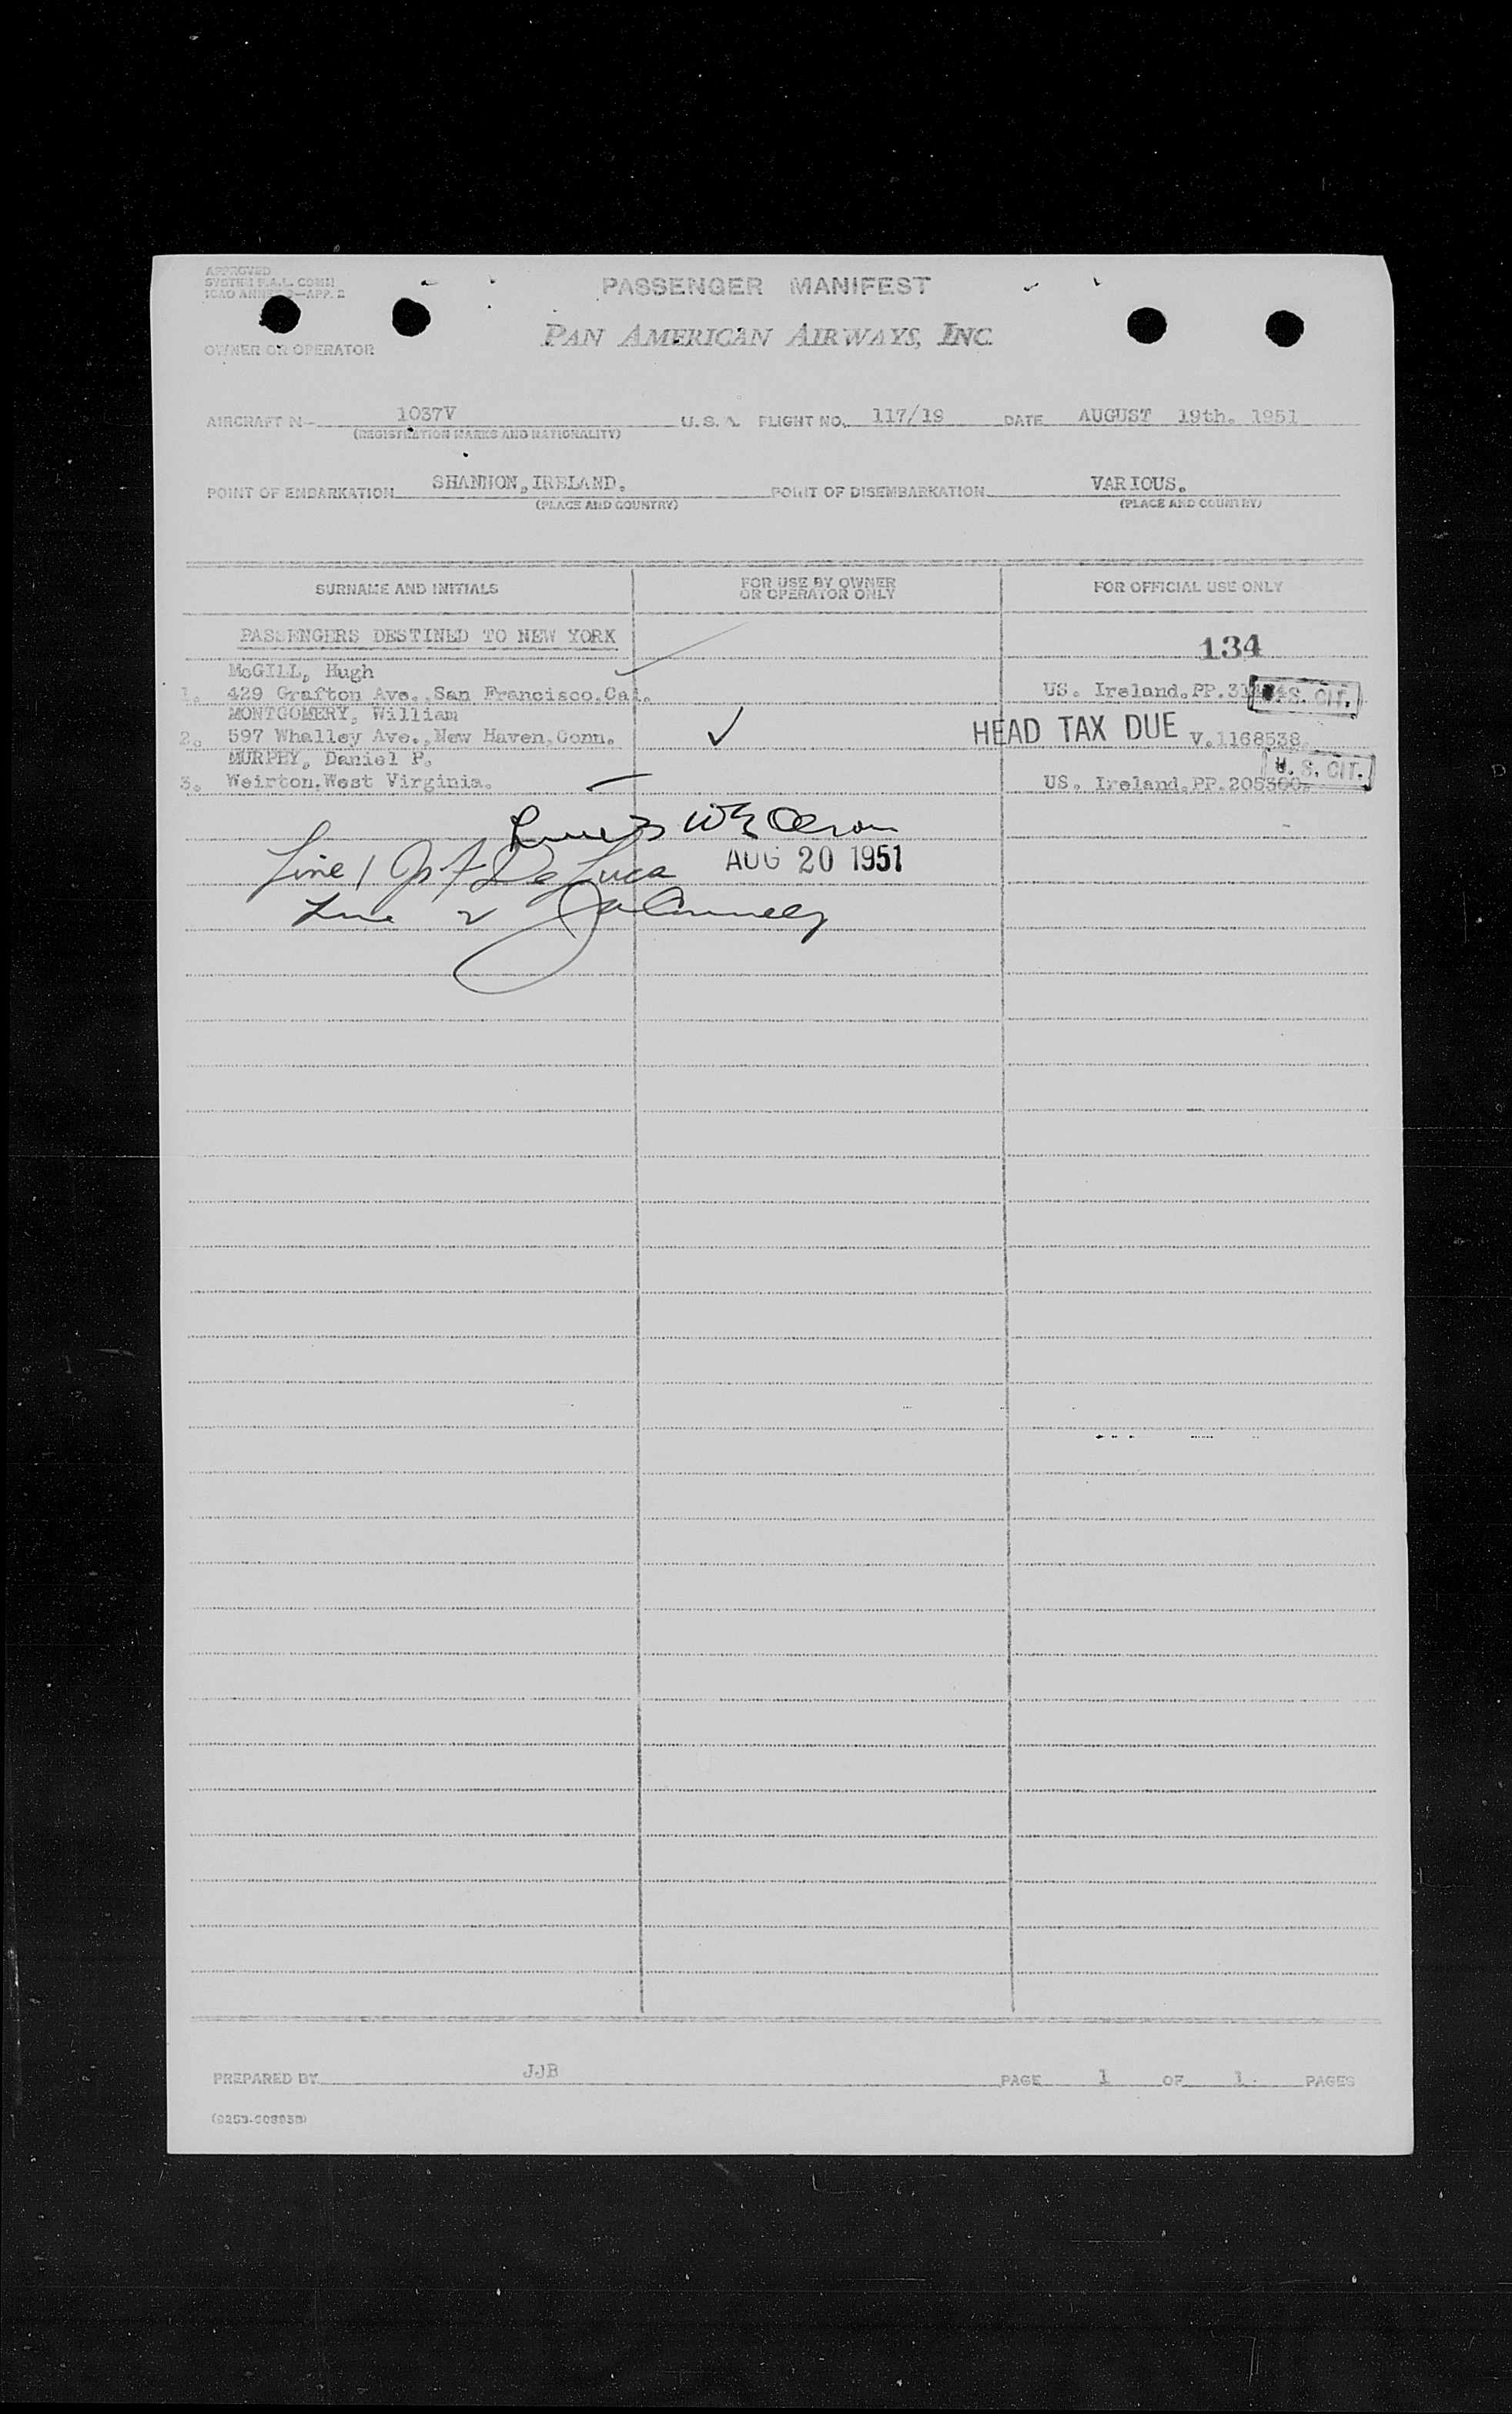 APPROVED
SYSTEM F.A.L. COMM
ICAO ANNEX 9—APP. 2
PASSENGER MANIFEST
OWNER OR OPERATOR
PAN AMERICAN AIRWAYS, INC.
AIRCRAFT N— 1037V U.S.A. FLIGHT NO. 117/19 DATE AUGUST 19th. 1951
(REGISTRATION MARKS AND NATIONALITY)
POINT OF EMBARKATION SHANNON, IRELAND. POINT OF DISEMBARKATION VARIOUS.
(PLACE AND COUNTRY) (PLACE AND COUNTRY)
SURNAME AND INITIALS FOR USE BY OWNER OR OPERATOR ONLY FOR OFFICIAL USE ONLY
PASSENGERS DESTINED TO NEW YORK 134
McGILL, Hugh
1. 429 Grafton Ave., San Francisco, Cal. US. Ireland. PP. U.S. CIT.
MONTGOMERY, William
2. 597 Whalley Ave., New Haven, Conn. ✓ HEAD TAX DUE V.1168538.
MURPHY, Daniel P. U. S. CIT.
3. Weirton, West Virginia. US. Ireland. PP. 205360.
Line 3
Line 1 De Luca AUG 20 1951
Line 2
PREPARED BY JJB PAGE 1 OF 1. PAGES